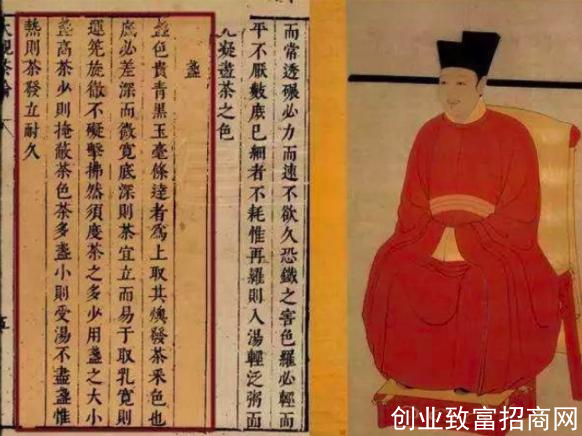 而常透碾必力而速不欲久恐鐵之害色羅必輕而
平不厭數庶已細者不耗惟再羅則入湯輕泛粥面
光凝盡茶之色
盞
盞色貴青黑玉毫條達者為上取其燠發茶采色也
底必差深而微寬底深則茶宜立而易于取乳寬則
運筅旋徹不礙擊拂然須度茶之多少用盞之大小
盞高茶少則掩蔽茶色茶多盞小則受湯不盡盞惟
熱則茶發立耐久
大觀茶論
五
创业致富招商网